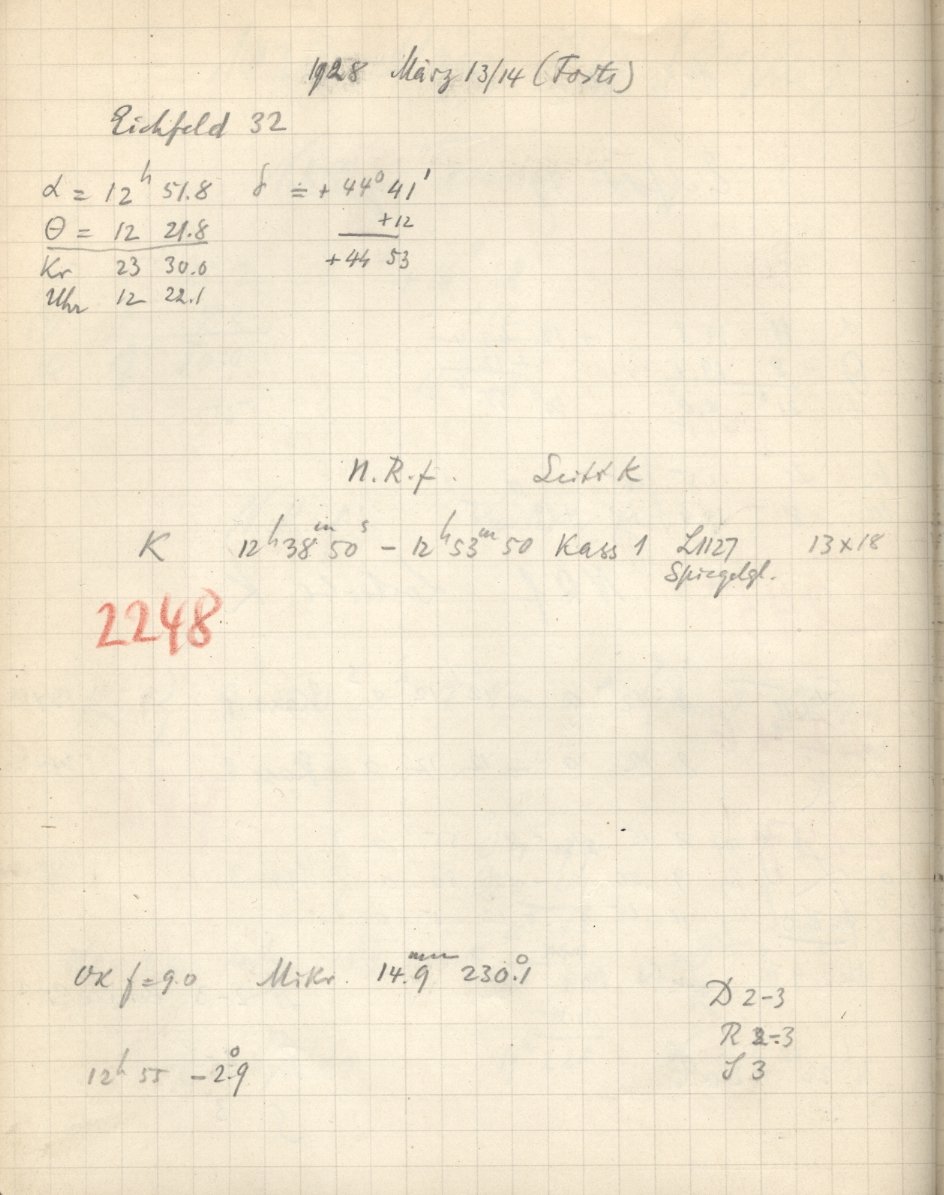 1928 März 13/14 (Forts)
Eichfeld 32
α = 12ʰ 51.8 δ = + 44° 41'
θ = 12 21.8 +12
Kr 23 30.0 +44 53
Uhr 12 22.1
N.R.f. Leitr K
K 12ʰ 38ᵐ 50ˢ – 12ʰ 53ᵐ 50 Kass 1 L1127 13x18
Spiegelgl.
2248
f = 9.0 Mikr. 14.9ᵐᵐ 230.°1
D 2-3
R 2-3
S 3
12ʰ 55 – 2.°9